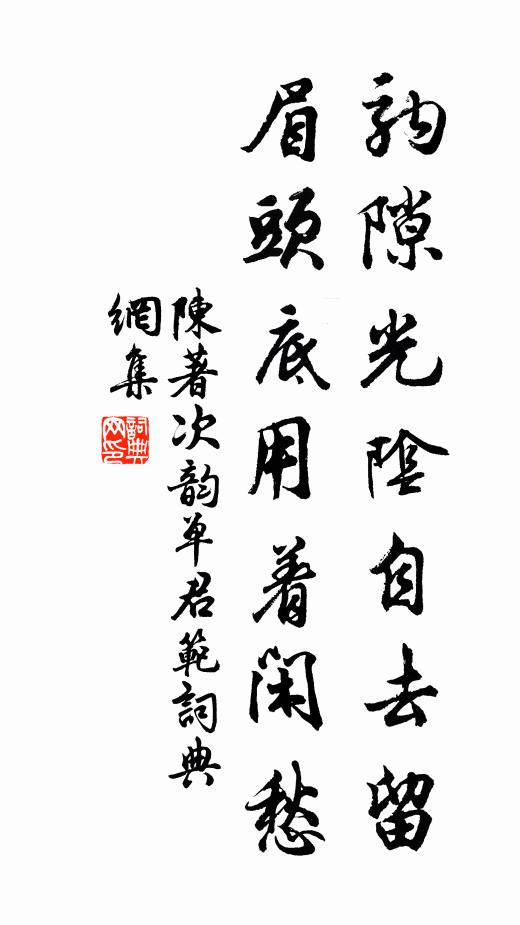 駒隙光陰自去留
眉頭底用着閑愁
陳著次韵单君範詞典
網集
詞典
网印